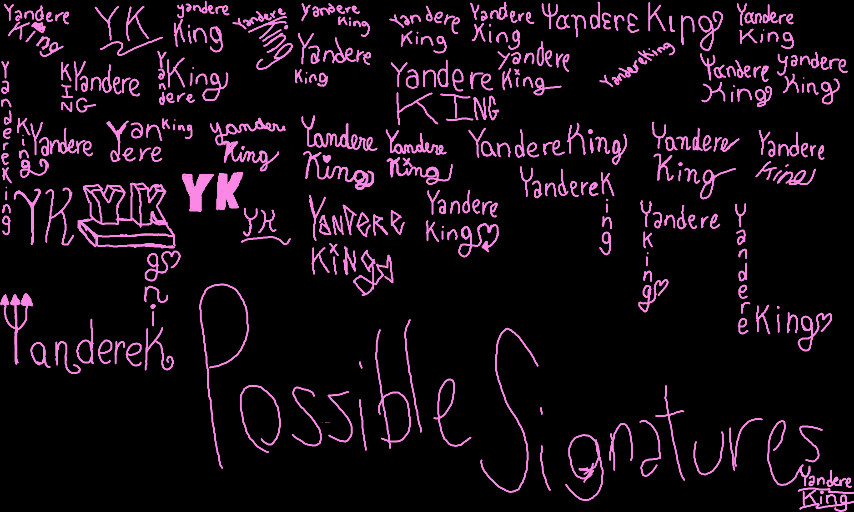 Yandere
King
YK
yandere
King
Yandere
Yandere
King
Yandere
King
Yandere
King
Yandere
King
Yandere King
Yandere
King
YandereKing
KING
Yandere
Yandere
King
Yandere
KING
yandere
King
YandereKing
Yandere
King
yandere
King
King
Yandere
Yandere
King
yandere
King
Yandere
King
Yandere
King
YandereKing
Yandere
King
Yandere
King
YK
YK
YK
YK
YANDERE
KiNg
Yandere
King
YandereK
ing
Yandere
King
Yandere
King
YandereK
ing
Possible Signatures
Yandere
King